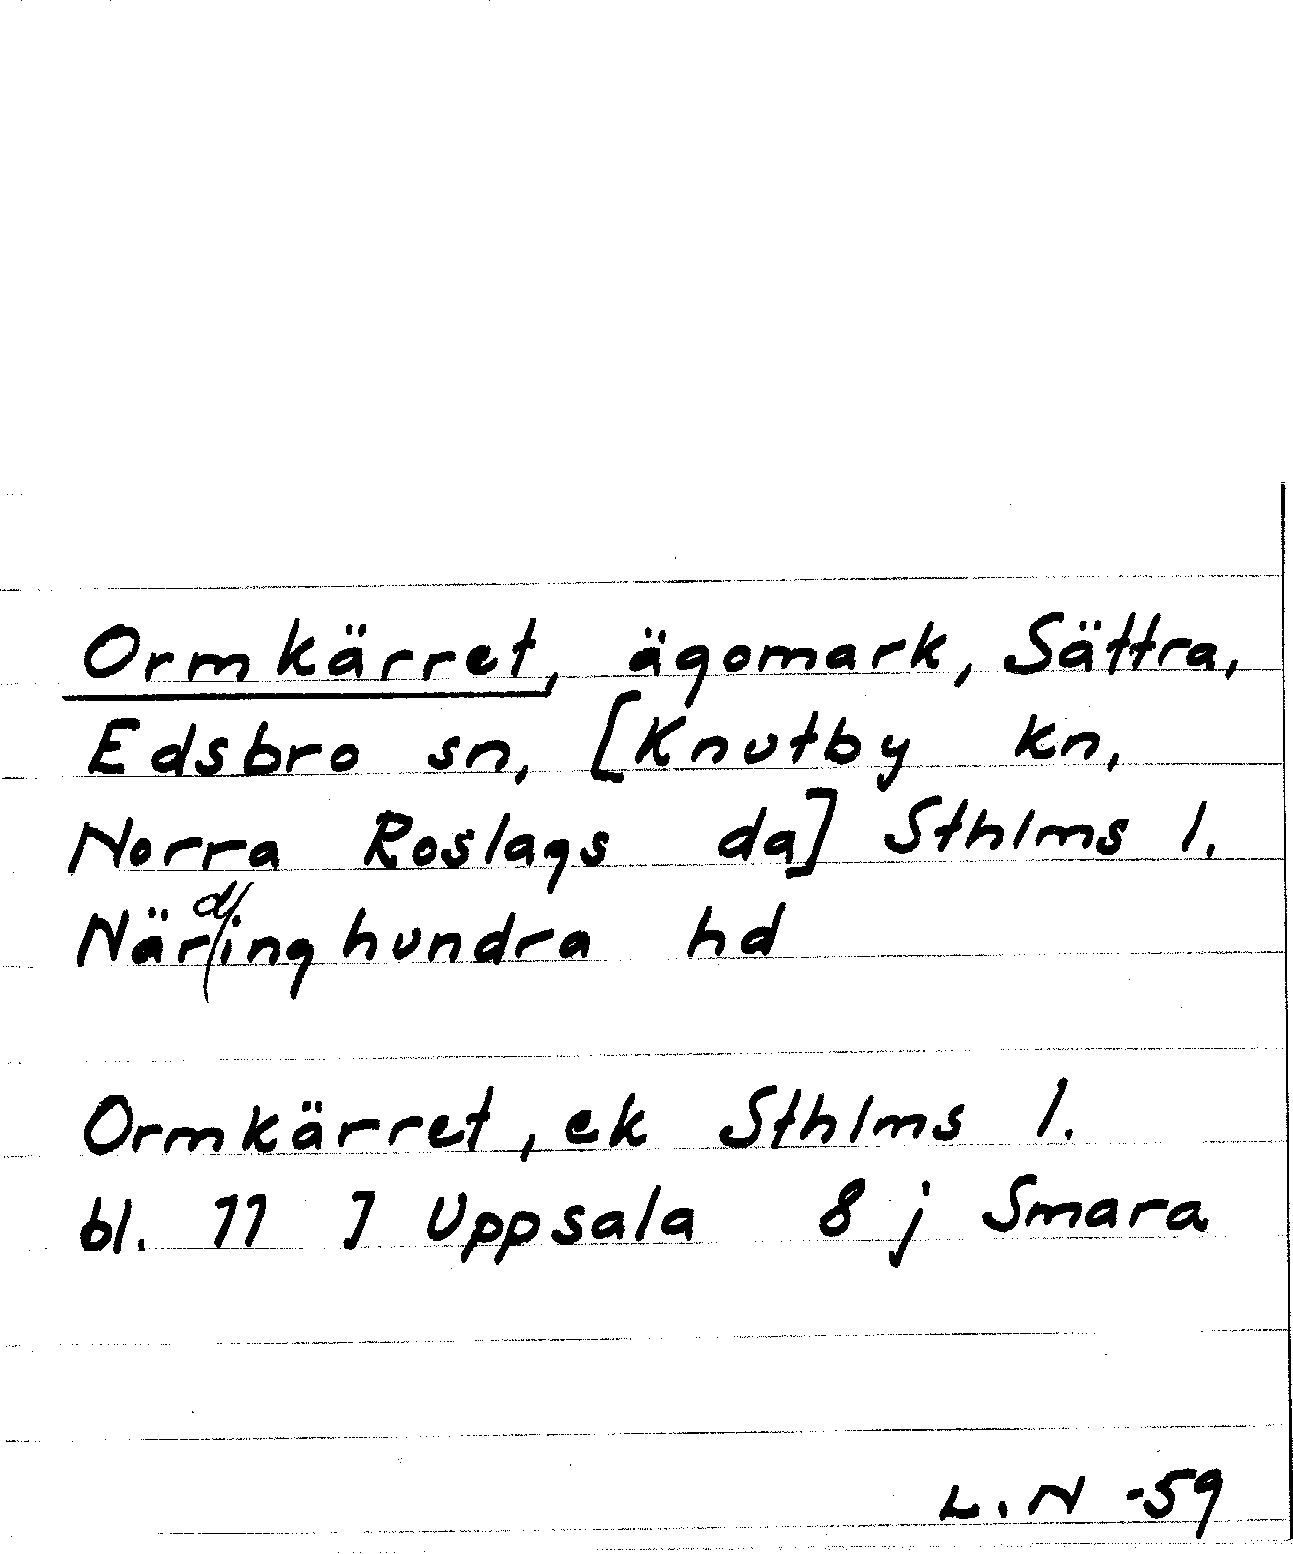 Ormkärret, ägomark, Sättra,
Edsbro sn, [Knutby kn,
Norra Roslags da] Sthlms l.
Närdinghundra hd
Ormkärret, ek Sthlms l.
bl. 77 7 Uppsala 8 j Smara
L.N -59